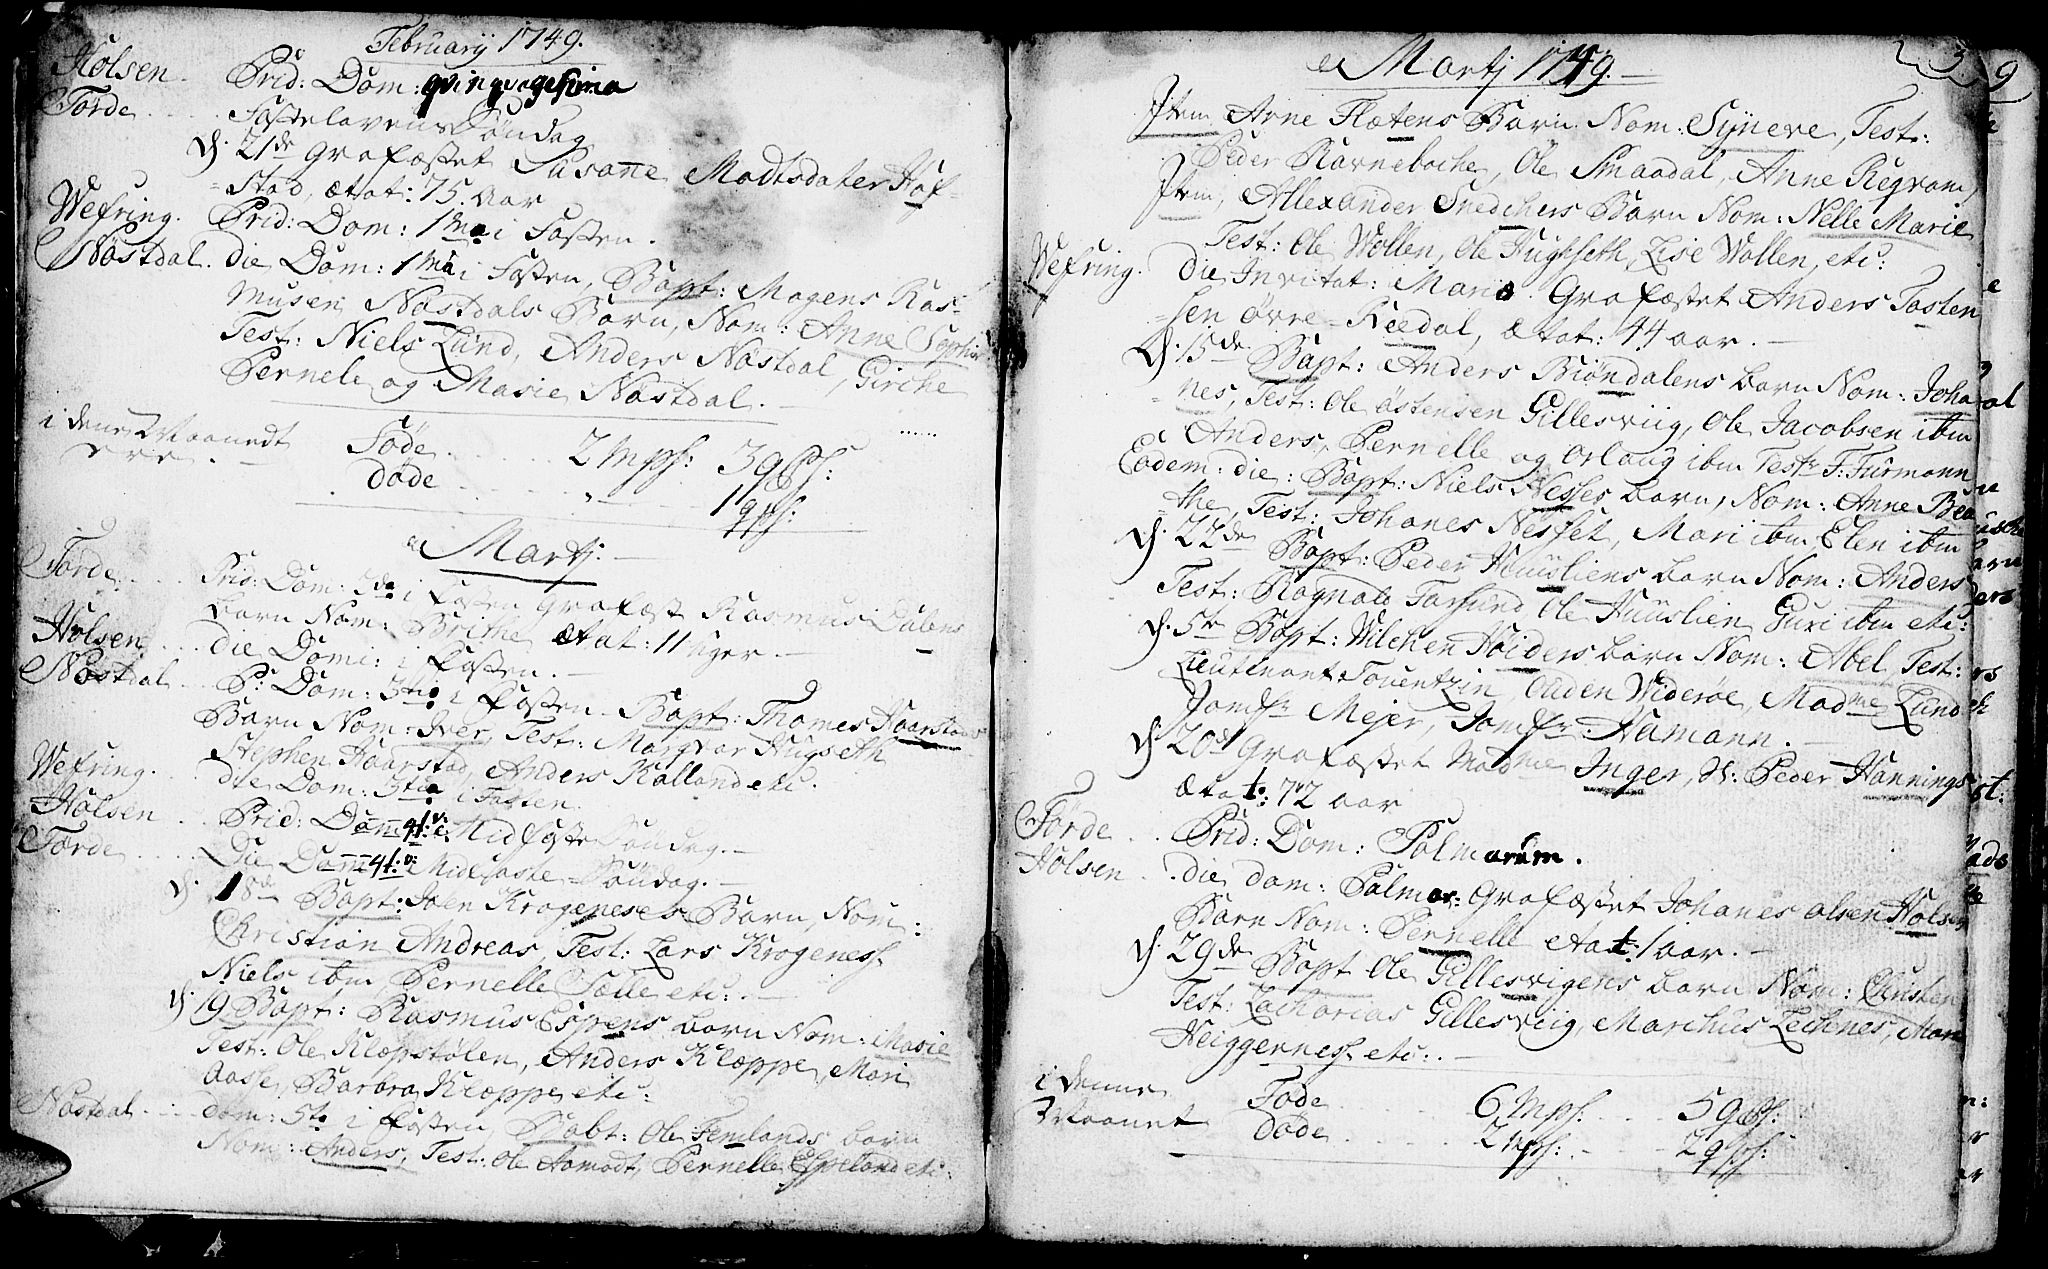 Februarij 1749.
Holsen. Prid: Dom: qvinqvagesima
Førde.... Fastelavens Søndag
d. 21de Grafæstet Susane Madtsdater Haf-
stad, ætat: 75 aar
Wefring. Prid: Dom: 1ma i Fasten.
Nøstdal. die Dom: 1ma i Fasten, Bapt: Mogens Ras-
musen Nøstdals Barn, Nom: Anne Sophie
Test: Niels Lund, Anders Nøstdal, Girche
Pernele og Marie Nøstdal.
i dene Maanedt
ere. Føde..... 2 Mpf: 3 qpf:
Døde..... 1 qpf:
Martj:
Førde.... Prid: Dom: 2da i fasten Grafæst Rasmus Dalens
barn Nom: Brithe ætat: 11 Uger.
Holsen... die Domi: i fasten.
Nøstdal... P: Dom: 3tia i fasten. Bapt: Thomes Haarstads
Barn Nom: Iver, Test: Margvar Hugseth
Stephen Haarstad, Anders Kalland etc.
Wefring. die Dom: 3tia i Fasten.
Holsen.. Prid: Dom 4t: Mid faste Søndag.
Førde.... Die Dom 4t: Midefaste Søndag.
d. 18de Bapt: Joen Krogenes Barn, Nom:
Christian Andreas, Test: Lars Krogenes
Niels ibm Pernelle Solle etc:
d. 19 Bapt: Rasmus Espens barn Nom: Marie
Test: Ole Klopstølen, Anders Kloppe, Mari
Aase, Barbra Kloppe etc:
Nøstdal... dom: 5ta i fasten, Babt: Ole Femlands barn
Nom: Anders, Test: Ole Aamodt, Pernelle Espeland etc:
Martj 1749.
Item, Arne Flætens Barn. Nom: Syneve, Test:
Peder Ravneboche, Ole Smaadal, Anne Regvam
Item, Allexander Snedchers Barn Nom: Nelle Marie
Test: Ole Wollen, Ole Hugseth, Lise Wollen, etc:
Wefring. Die Invitat: Mariæ. Grafæstet Anders Tosten
sen øvre-Reedal, ætat: 44 aar.
d. 15de Bapt: Anders Biøndalens barn Nom: Joha-
nes, Test: Ole Østensen Gillesviig, Ole Jacobsen ibm
Anders, Pernelle og Orlaug ibm
Eodem: die: Bapt: Niels Nesses barn, Nom: Anne
the, Test: Johanes Nesset, Mari ibm Elen ibm
d. 22de Bapt: Peder Huusliens barn Nom: Anders
Test: Ragnald Farsund Ole Huuslien Guri ibm etc:
d. 5te Bapt: Wilchen Høiders barn Nom: Abel, Test:
Lieutenant Touentzin, Ouden Widerøe, Madme Lund
Jomfr Mejer, Jomfr. Hamann.
d. 20de Grafæstet Madme Inger, Sl: Peder Hannings
ætat: 72 aar
Førde.. Prid: Dom: Palmarum.
Holsen. die dom: Palmar: Grafæstet Johanes olsen Holsen
Barn Nom: Pernelle ætat: 1 aar.
d. 29de Bapt Ole Gillesvigens barn Nom: Christen
Test: Zacharias Gillesviig, Marchus Lechenes, Mari
Heiggernes etc:
i denne
Maanet Føde..... 6 Mpf:.... 5 qpf:
Døde..... 2 Mpf:.... 2 qpf: